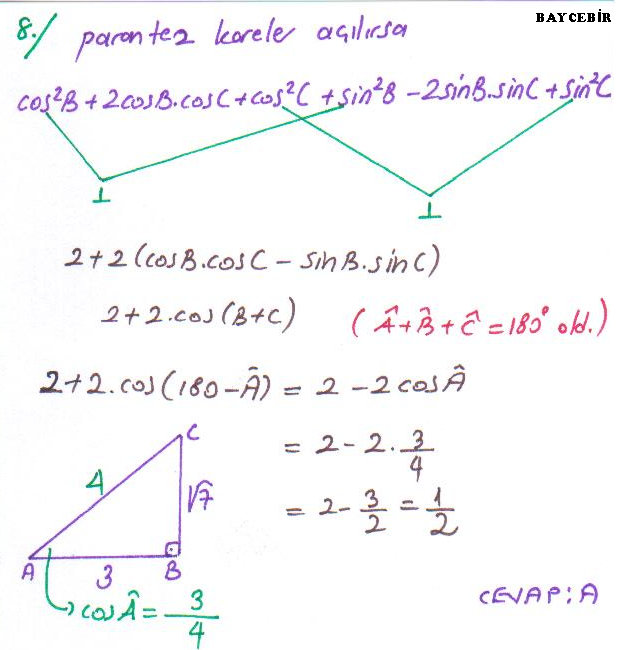 BAYCEBİR
8./ parantez kareler açılırsa
cos²B + 2cosB.cosC + cos²C + sin²B - 2sinB.sinC + sin²C
1
1
2+2(cosB.cosC - sinB.sinC)
2+2.cos(B+C) (Â+B̂+Ĉ=180° old.)
2+2.cos(180-Â) = 2 - 2cosÂ
= 2 - 2. 3/4
= 2 - 3/2 = 1/2
C
4
√7
A 3 B
cosÂ = 3/4
CEVAP: A